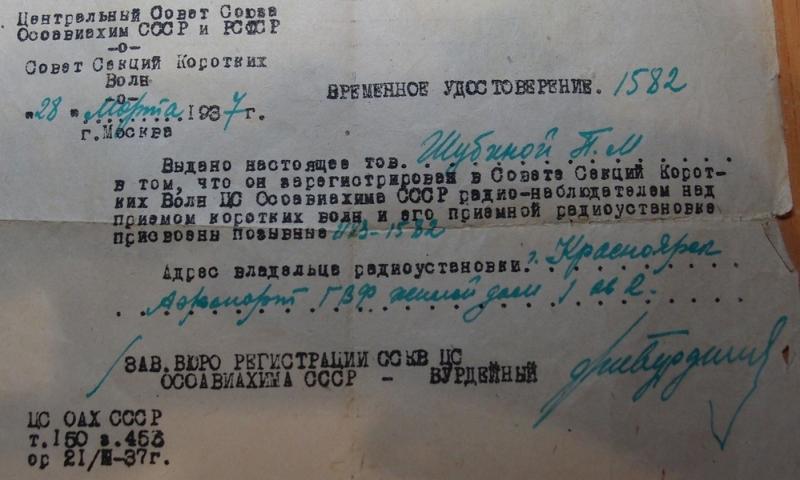 Центральный Совет Союза
Осоавиахим СССР и РСФСР
-о-
Совет Секций Коротких
Волн
-о-
"28" Марта 1937г.
г.Москва
ВРЕМЕННОЕ УДОСТОВЕРЕНИЕ. 1582
Выдано настоящее тов. Шубиной П.М
в том, что он зарегистрирован в Совета Секций Корот-
ких Волн ЦС Осоавиахима СССР радио-наблюдателем над
приемом коротких волн и его приемной радиоустановке
присвоены позывные -1582
Адрес владельца радиоустановки. г. Красноярск
Аэропорт ГВФ жилой дом 1 кв 2.
ЗАВ.БЮРО РЕГИСТРАЦИИ ССКВ ЦС
ОСОАВИАХИМА СССР - БУРДЕЙНЫЙ
ЦС ОАХ СССР
т.150 з.453
ор 21/III-37г.